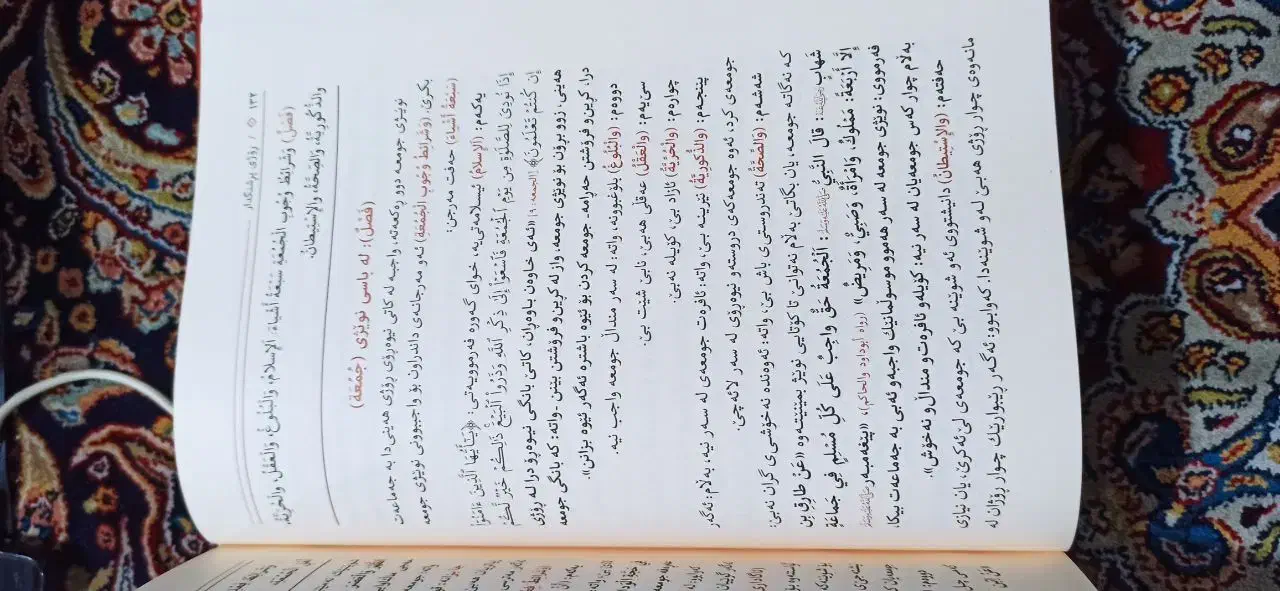 ١٣٢ / رۆژی پرشنگدار
(فَصْلٌ) وَشَرائطُ وُجُوبِ الجُمُعَة سَبْعَةُ أَشْيَاءَ: الإسلام، والْبُلوغُ، والْعَقْل، والحُرِيَّة،
والذُّكُورِيَّةُ، وَالصِّحَّةُ، والإسْتِيطَانُ.
(فَصْلٌ): لە باسی نوێژی (جُمُعَة)
نوێژی جومعە دوو ڕەکعەتە، واجبە لە کاتی نیوەڕۆی ڕۆژی هەینی دا بە جەماعەت
بکرێ، (وَشَرائِطُ وُجُوبِ الجُمُعَةِ) ئەو مەرجانەی داندراون بۆ واجببوونی نوێژی جومعە
(سَبْعَةُ أَشْيَاءَ) حەفت مەرجن:
یەکەم: (الإسلامُ) ئیسلامەتی یە، خوای گەورە فەرموویەتی: ﴿يَـٰٓأَيُّهَا ٱلَّذِينَ ءَامَنُوٓا۟
إِذَا نُودِىَ لِلصَّلَوٰةِ مِن يَوْمِ ٱلْجُمُعَةِ فَٱسْعَوْا۟ إِلَىٰ ذِكْرِ ٱللَّهِ وَذَرُوا۟ ٱلْبَيْعَ ذَٰلِكُمْ خَيْرٌ لَّكُمْ
إِن كُنتُمْ تَعْلَمُونَ﴾ [الجمعة: ٩] «ئەی خاوەن باوەڕان، کاتی بانگی نیوەڕۆ درا لە ڕۆژی
هەینی، زوو بڕۆن بۆ نوێژی جومعە، واز لە کڕین و فرۆشتن بێنن ـ واتە: کە بانگی جومعە
درا، کڕین و فرۆشتن حەرامە ـ جومعە کردن بۆ ئێوە باشترە ئەگەر ئێوە بزانن».
دووەم: (والْبُلوغُ) بلوغبوونە، واتە: لە سەر منداڵ جومعە واجب نیە.
سێ یەم: (والعَقْلُ) عەقڵی هەبێ، نابێ شێت بێ.
چوارەم: (والحُرِّيَّةُ) ئازاد بێ، کۆیلە نەبێ.
پێنجەم: (والذُّكورِيَّةُ) نێرینە بێ، واتە: ئافرەت جومعەی لە سەر نیە، بەڵام: ئەگەر
جومعەی کرد، ئەوە جومعەکەی دروستە و نیوەڕۆی لە سەر لائەچێ.
شەشەم: (والصِّحَّةُ) تەندروستی ی باش بێ، واتە: ئەوەندە نەخۆشی ی گران نەبێ:
کە نەگاتە جومعە، یان بگاتێ بەڵام نەتوانێ تا کۆتایی نوێژ بمێنێتەوە «عَنْ طارِقِ بن
شَهابٍ: قالَ النَّبِيُّ: الْجُمُعَةُ حَقٌّ واجِبٌ عَلى كُلِّ مُسْلِمٍ في جَماعَةٍ
إِلّا أَرْبَعَةً: مَمْلوكٌ، وَامْرَأَةٌ، وَصَبِيٌّ، وَمَرِيضٌ» (رواه أبوداود والحاكم)، «پێغەمبەر
فەرمووی: نوێژی جومعە لە سەر هەموو موسوڵمانێک واجبە و ئەبی بە جەماعەت بیکا،
بەڵام چوار کەس جومعەیان لە سەر نیە: کۆیلە و ئافرەت و منداڵ و نەخۆش».
حەفتەم: (والإسْتِيطانُ) دانیشتووی ئەو شوێنە بێ کە جومعەی لێ ئەکرێ، یان نیازی
مانەوەی چوار ڕۆژی هەبێ لەو شوێنەدا. کەوابوو: ئەگەر ڕێبوارێک چوار ڕۆژان لە